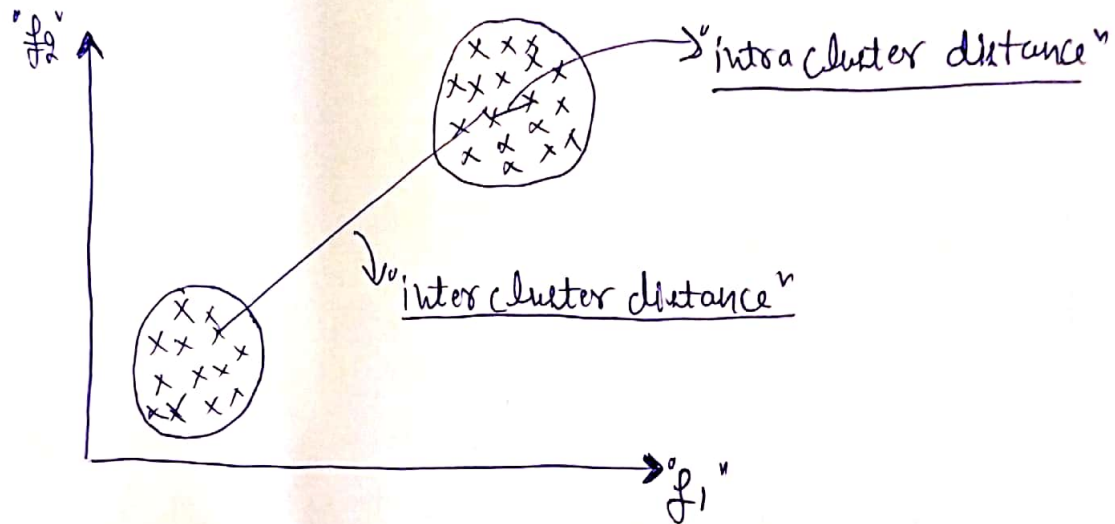 "f2"
"intracluster distance"
"intercluster distance"
"f1"